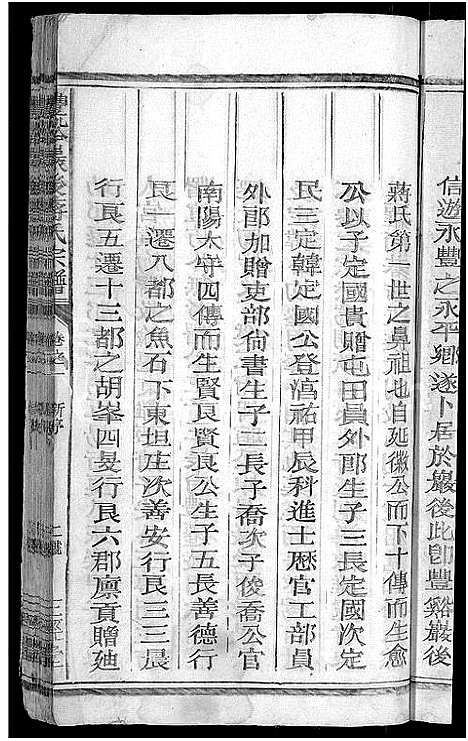 信遊永豐之永平鄉遂卜居於巖後此卽豐谿巖後
蔣氏第一世之鼻祖也自延徽公而下十傳而生愈
公以子定國貴贈屯田員外郎生子三長定國次定
民三定韓定國公登淳祐甲辰科進士歷官工部員
外郎加贈吏部尙書生子二長子喬次子俊喬公官
南陽太守四傳而生賢良賢良公生子五長善德行
良一遷入都之魚石下東坦庄次善安行良三三晨
行良五遷十三都之胡峯四旻行良六郡廩貢贈廸
豐谿巖後蔣氏宗譜
卷之一
新序